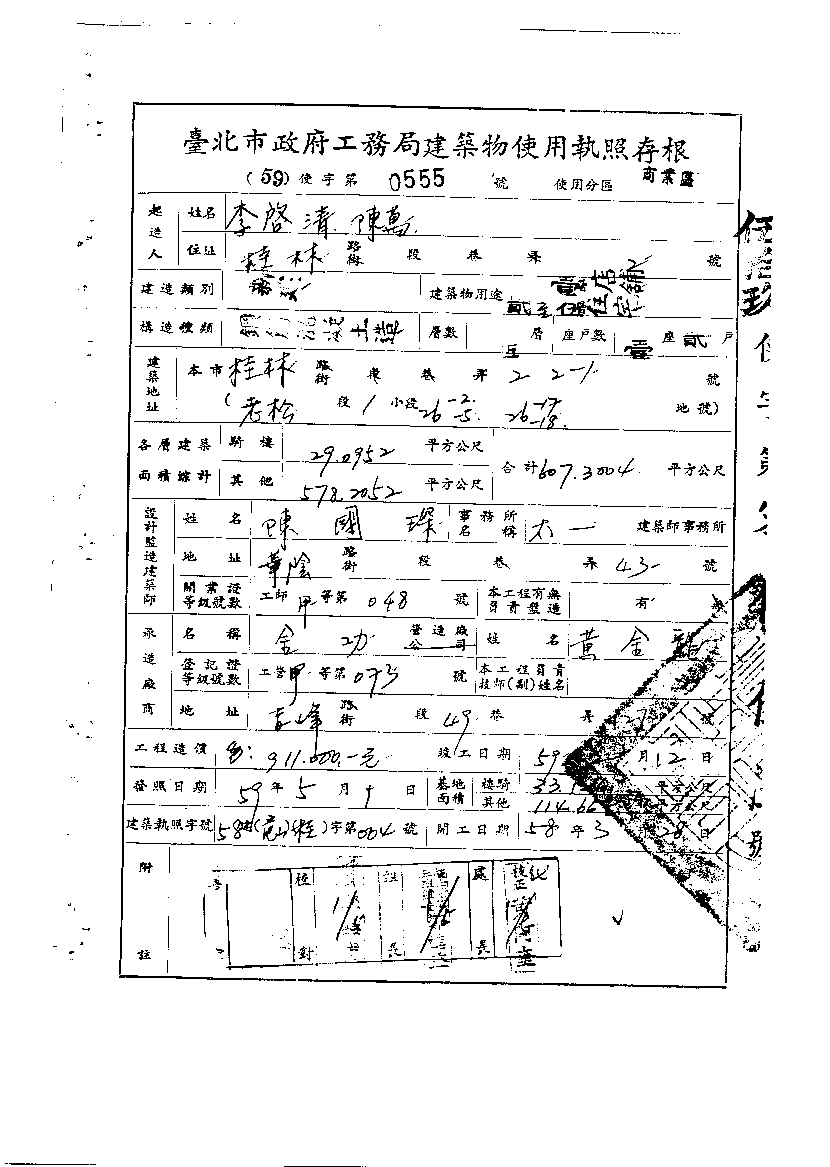 臺北市政府工務局建築物使用執照存根
(59)使字第 0555 號 使用分區 商業區
起造人 姓名 李啓清 陳萬
住址 桂林 路街 段 巷 弄 2 號
建造類別 建築物用途 壹店舖 貳至伍住宅
構造種類 鋼筋混凝土造 層數 五 層 座戶數 壹 座 貳 戶
建築地址 本市 桂林 路街 段 巷 弄 2 2-1 號
(老松 段 1 小段 26-2 -5 26-17 -18 地號)
各層建築面積綜計 騎樓 29.0952 平方公尺 合計 607.3004 平方公尺
其他 578.2052 平方公尺
設計監造建築師 姓名 陳國琛 事務所名稱 太一 建築師事務所
地址 華陰 路街 段 巷 弄 43 號
開業證等級號數 工師 甲 等第 048 號 本工程有無負責監造 有 無
承造廠商 名稱 金功 營造廠公司 姓名 黃金
登記證等級號數 工營 甲 等第 073 號 本工程負責技師(副)姓名
地址 吉峰 路街 段 49 巷 弄 號
工程造價 911.000.-元 竣工日期 59 月 12 日
發照日期 59 年 5 月 日 基地面積 樓騎 33. 平方公尺
其他 114.66 平方公尺
建築執照字號 58 (桂)字第 004 號 開工日期 58 年 3 28 日
附註
核對 組長 處長 核正
使字第 號